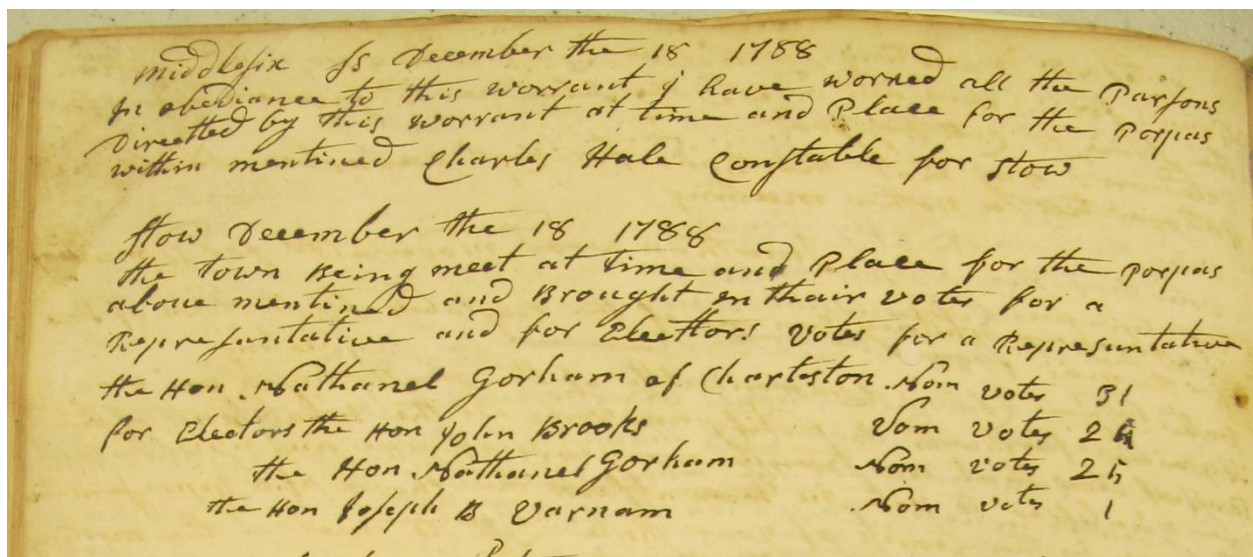 middlesix Ss December the 18 1788
In obediance to this worrant I have worned all the Parsons
Directted by this worrant at time and Place for the Porpas
within mentined Charles Hale Constable for Stow
Stow December the 18 1788
the town Being meet at time and Place for the porpas
above mentined and Brought in thair votes for a
Representative and for Electtors votes for a Representative
the Hon Nathanel Gorham of Charleston Nom votes 31
for Electors the Hon John Brooks Nom votes
the Hon Nathanel Gorham Nom votes 25
the Hon Joseph B Varnam Nom votes 1